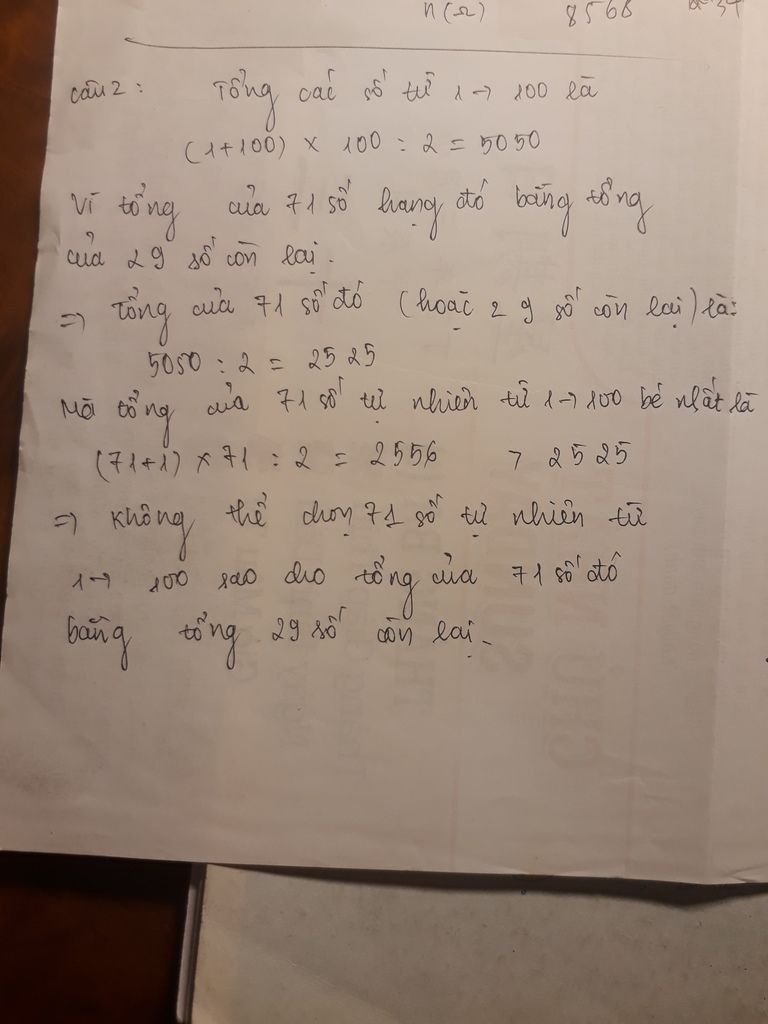 n(Ω) 8568
Câu 2: Tổng các số từ 1 → 100 là
(1+100) × 100 : 2 = 5050
Vì tổng của 71 số hạng đó bằng tổng
của 29 số còn lại.
⇒ Tổng của 71 số đó (hoặc 29 số còn lại) là:
5050 : 2 = 2525
Mà tổng của 71 số tự nhiên từ 1→100 bé nhất là
(71+1) × 71 : 2 = 2556 > 2525
⇒ Không thể chọn 71 số tự nhiên từ
1→ 100 sao cho tổng của 71 số đó
bằng tổng 29 số còn lại.